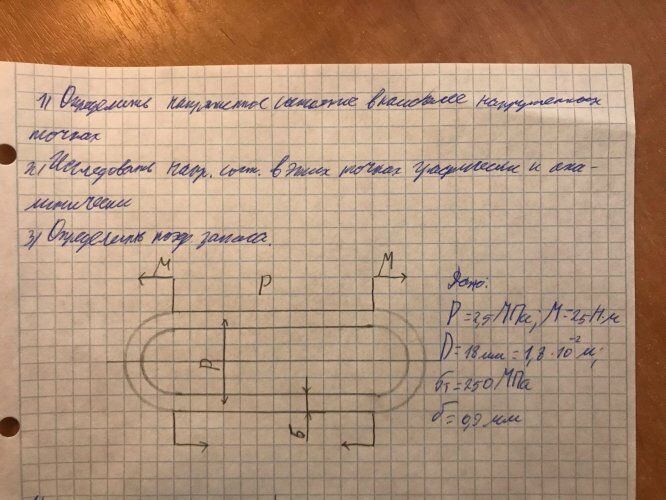 1) Определить напряженное состояние в наиболее нагруженных
точках
2) Исследовать напр. сост. в этих точках графически и ана-
литически
3) Определить коэф. запаса.
M
M
P
Дано:
P = 2,5 МПа; M = 25 Н·м
D = 18 мм = 1,8 · 10⁻² м;
D
σт = 250 МПа
δ = 0,9 мм
δ